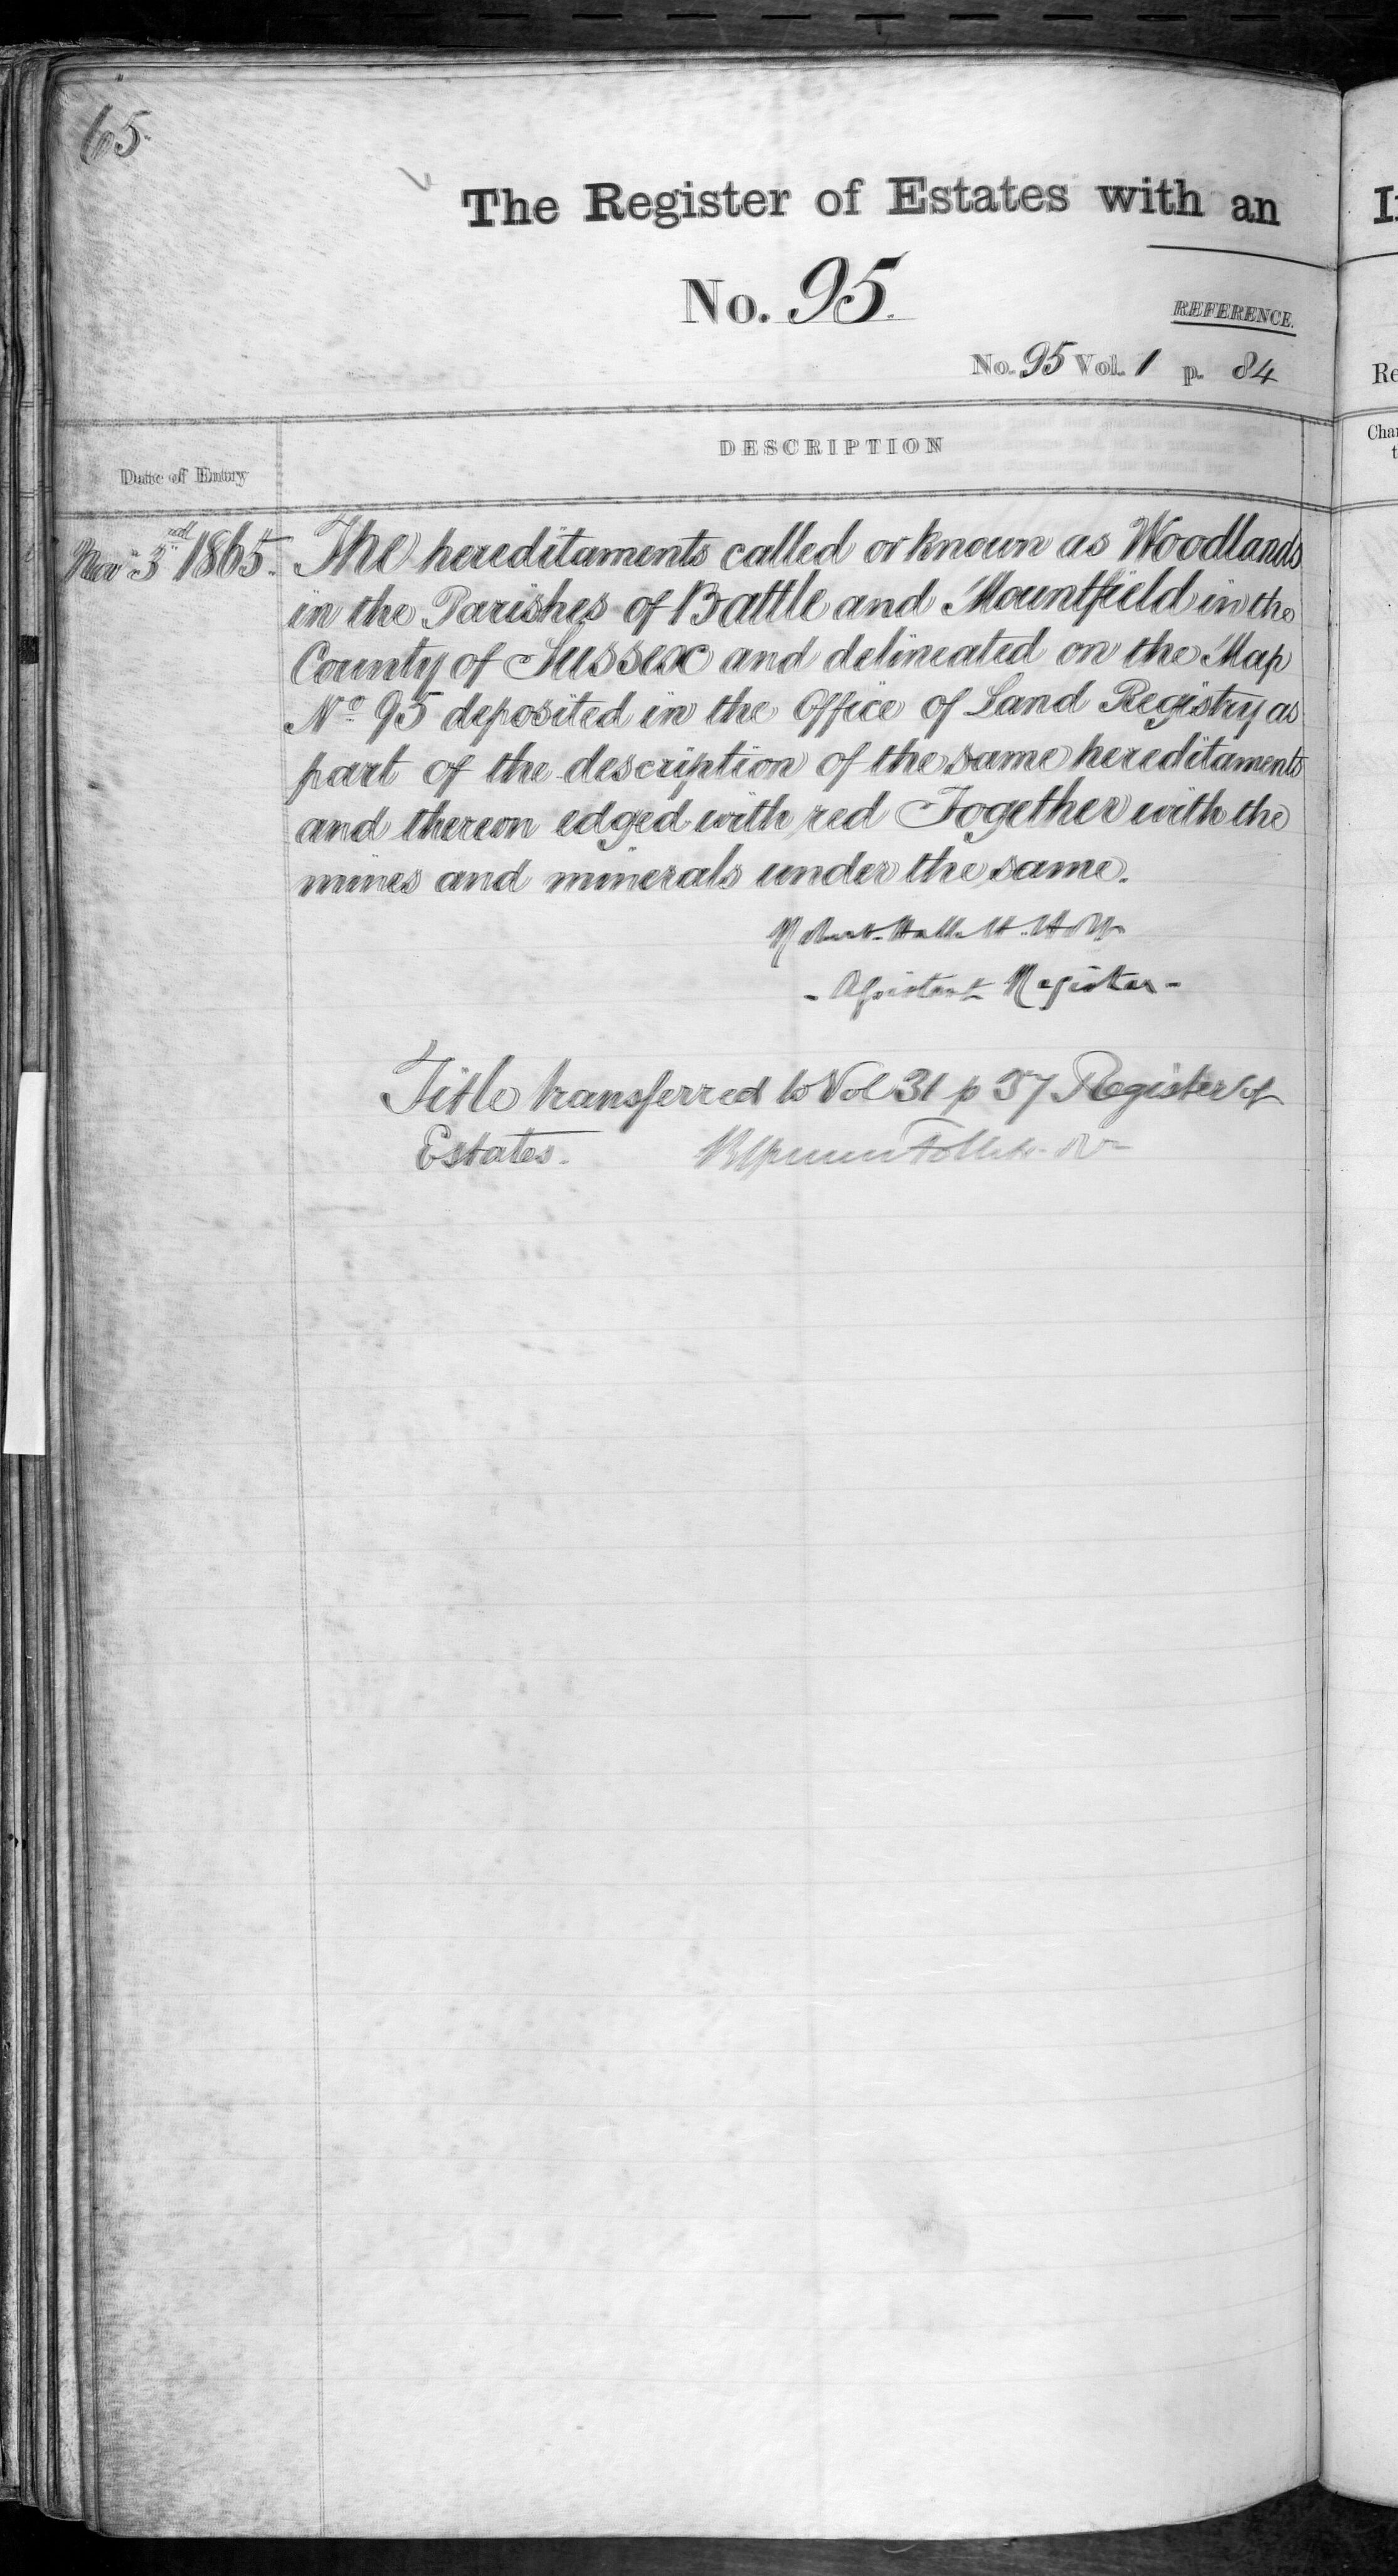 65.
The Register of Estates with an
No. 95.
REFERENCE.
No. 95 Vol. 1 p. 84
DESCRIPTION
Date of Entry
3rd 1865. The hereditaments called or known as Woodlands
in the Parishes of Battle and Mountfield in the
County of Sussex and delineated on the Map
No. 95 deposited in the Office of Land Registry as
part of the description of the same hereditaments
and thereon edged with red Together with the
mines and minerals under the same.
Robert Hallett Holt
- Assistant Registrar -
Title transferred to Vol 31 p 37 Register of
Estates.
Re
Char
t